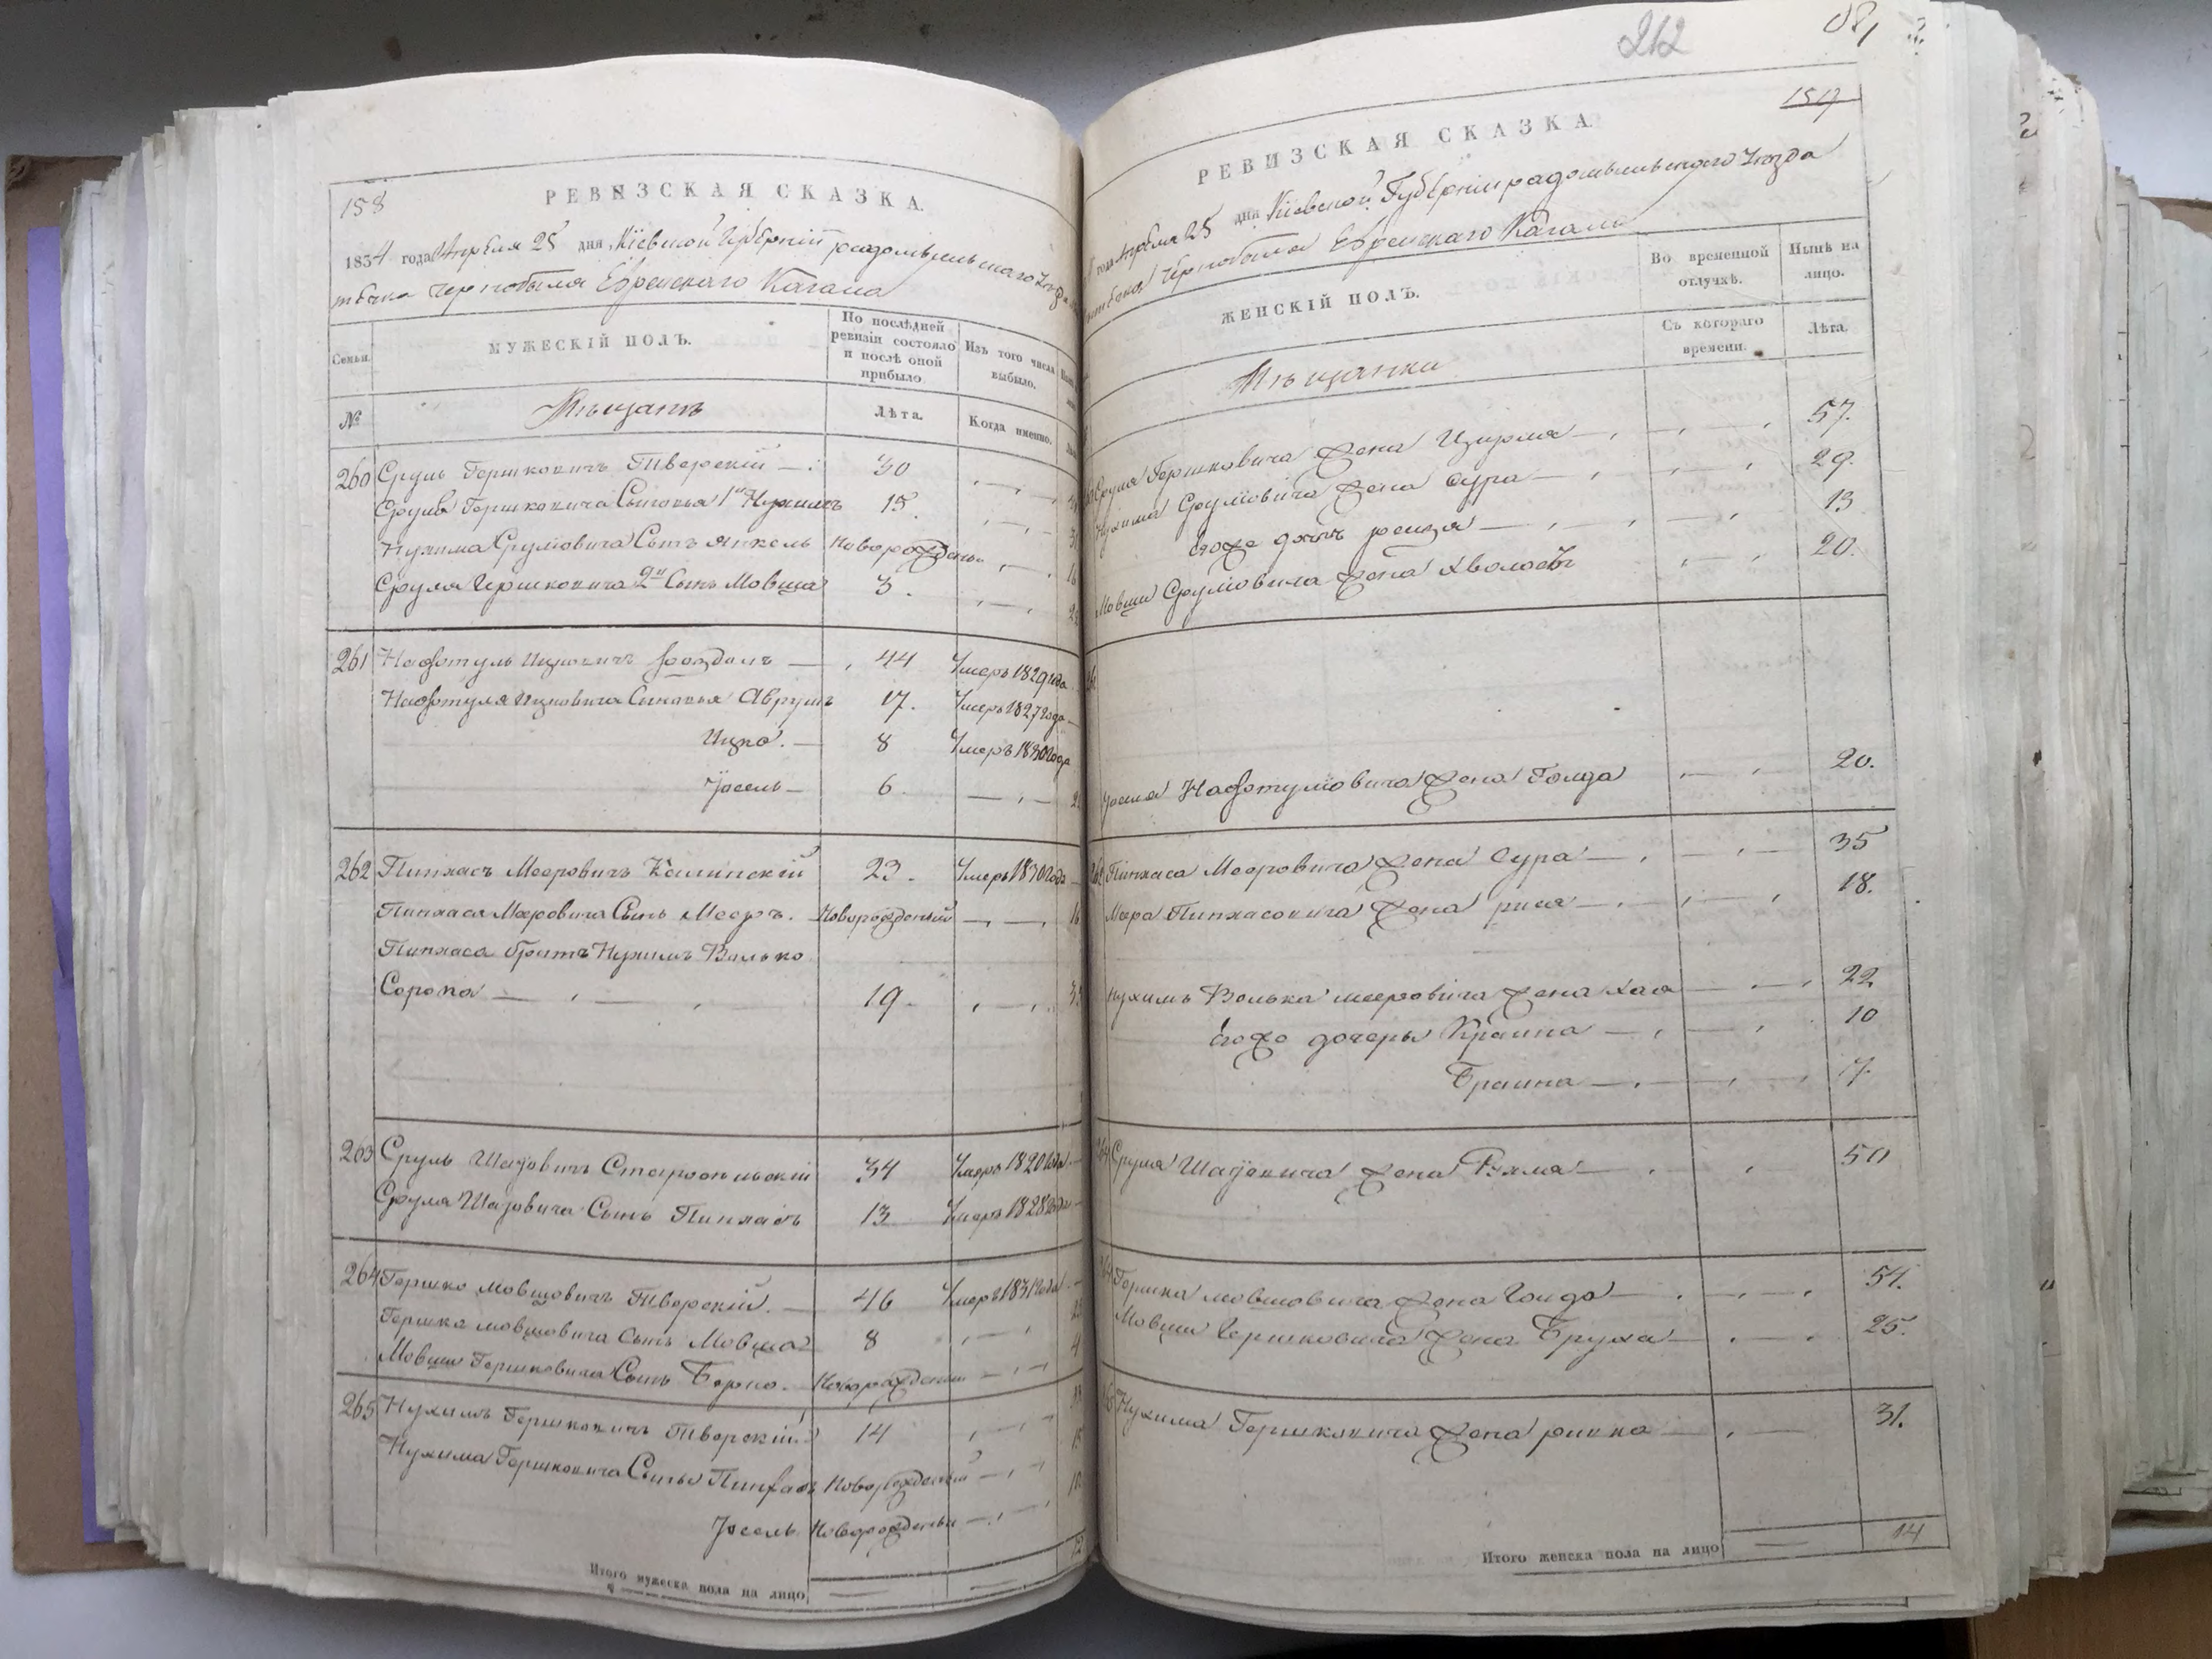 158
РЕВИЗСКАЯ СКАЗКА.
1834 года Апреля 25 дня Кіевской Губерніи радомысльскаго Уезда
мѣстечка Чернобыля Еврейскаго Кагала
Семьи. МУЖЕСКІЙ ПОЛЪ. По послѣдней ревизіи состояло и послѣ оной прибыло Изъ того числа выбыло.
№ Мещанъ Лѣта. Когда именно.
260 Сруль Гершковичъ Тверскій 30
Сруля Гершковича Сыновья 1й Нухимъ 15
Нухима Срулиовича Сынъ Янкель Новорожденъ
Сруля Гершковича 2й Сынъ Мовша 3
261 Нафтуль Ицковичъ 44 Умеръ 1829 года
Нафтуля Ицковича Сыновья Аврумъ 17. Умеръ 1827 года
Ицко. 8 Умеръ 1830 года
Іосель 6.
262 Пинхасъ Мееровичъ Калинскій 23. Умеръ 1830 года
Пинхаса Мееровича Сынъ Мееръ. Новорожденый 16
Пинхаса братъ Нухимъ Волько
Сорока 19.
263 Сруль Шаіовичъ Старосельскій 34 Умеръ 1820 года
Сруля Шаіовича Сынъ Пинхасъ 13 Умеръ 1828 года
264 Гершко Мовшовичъ Тверскій. 46 Умеръ 1831 года
Гершка Мовшовича Сынъ Мовша 8
Мовши Гершковича Сынъ Берко. Новорожденый 4
265 Нухимъ Гершковичъ Тверскій 14
Нухима Гершковича Сынъ Пинхасъ Новорожденый
Іосель Новорожденый
Итого мужеска пола на лицо 12
212
159
РЕВИЗСКАЯ СКАЗКА
года Апреля 25 дня Кіевской Губерніи радомысльскаго Уезда
Чернобыля Еврейскаго Кагала
ЖЕНСКІЙ ПОЛЪ. Во временной отлучкѣ. Нынѣ на лицо.
Мещанки Съ котораго времени. Лѣта.
Сруля Гершковича жена Цирля 57.
Нухима Срулиовича жена Сура 29.
Егоже дочь рейзя 13
Мовши Срулиовича жена Хволесъ 20.
Іоселя Нафтулиовича жена Голда 20.
262 Пинхаса Мееровича жена Сура 35
Меера Пинхасовича жена рися 18.
Нухимъ Волька Мееровича жена Хая 22
Егоже дочеры Краина 10
Браина 7.
Сруля Шаіовича жена Рухля 50
Гершка Мовшовича жена Голда 51.
Мовши Гершковича жена Бруха 25.
Нухима Гершковича жена ривка 31.
Итого женска пола на лицо 14